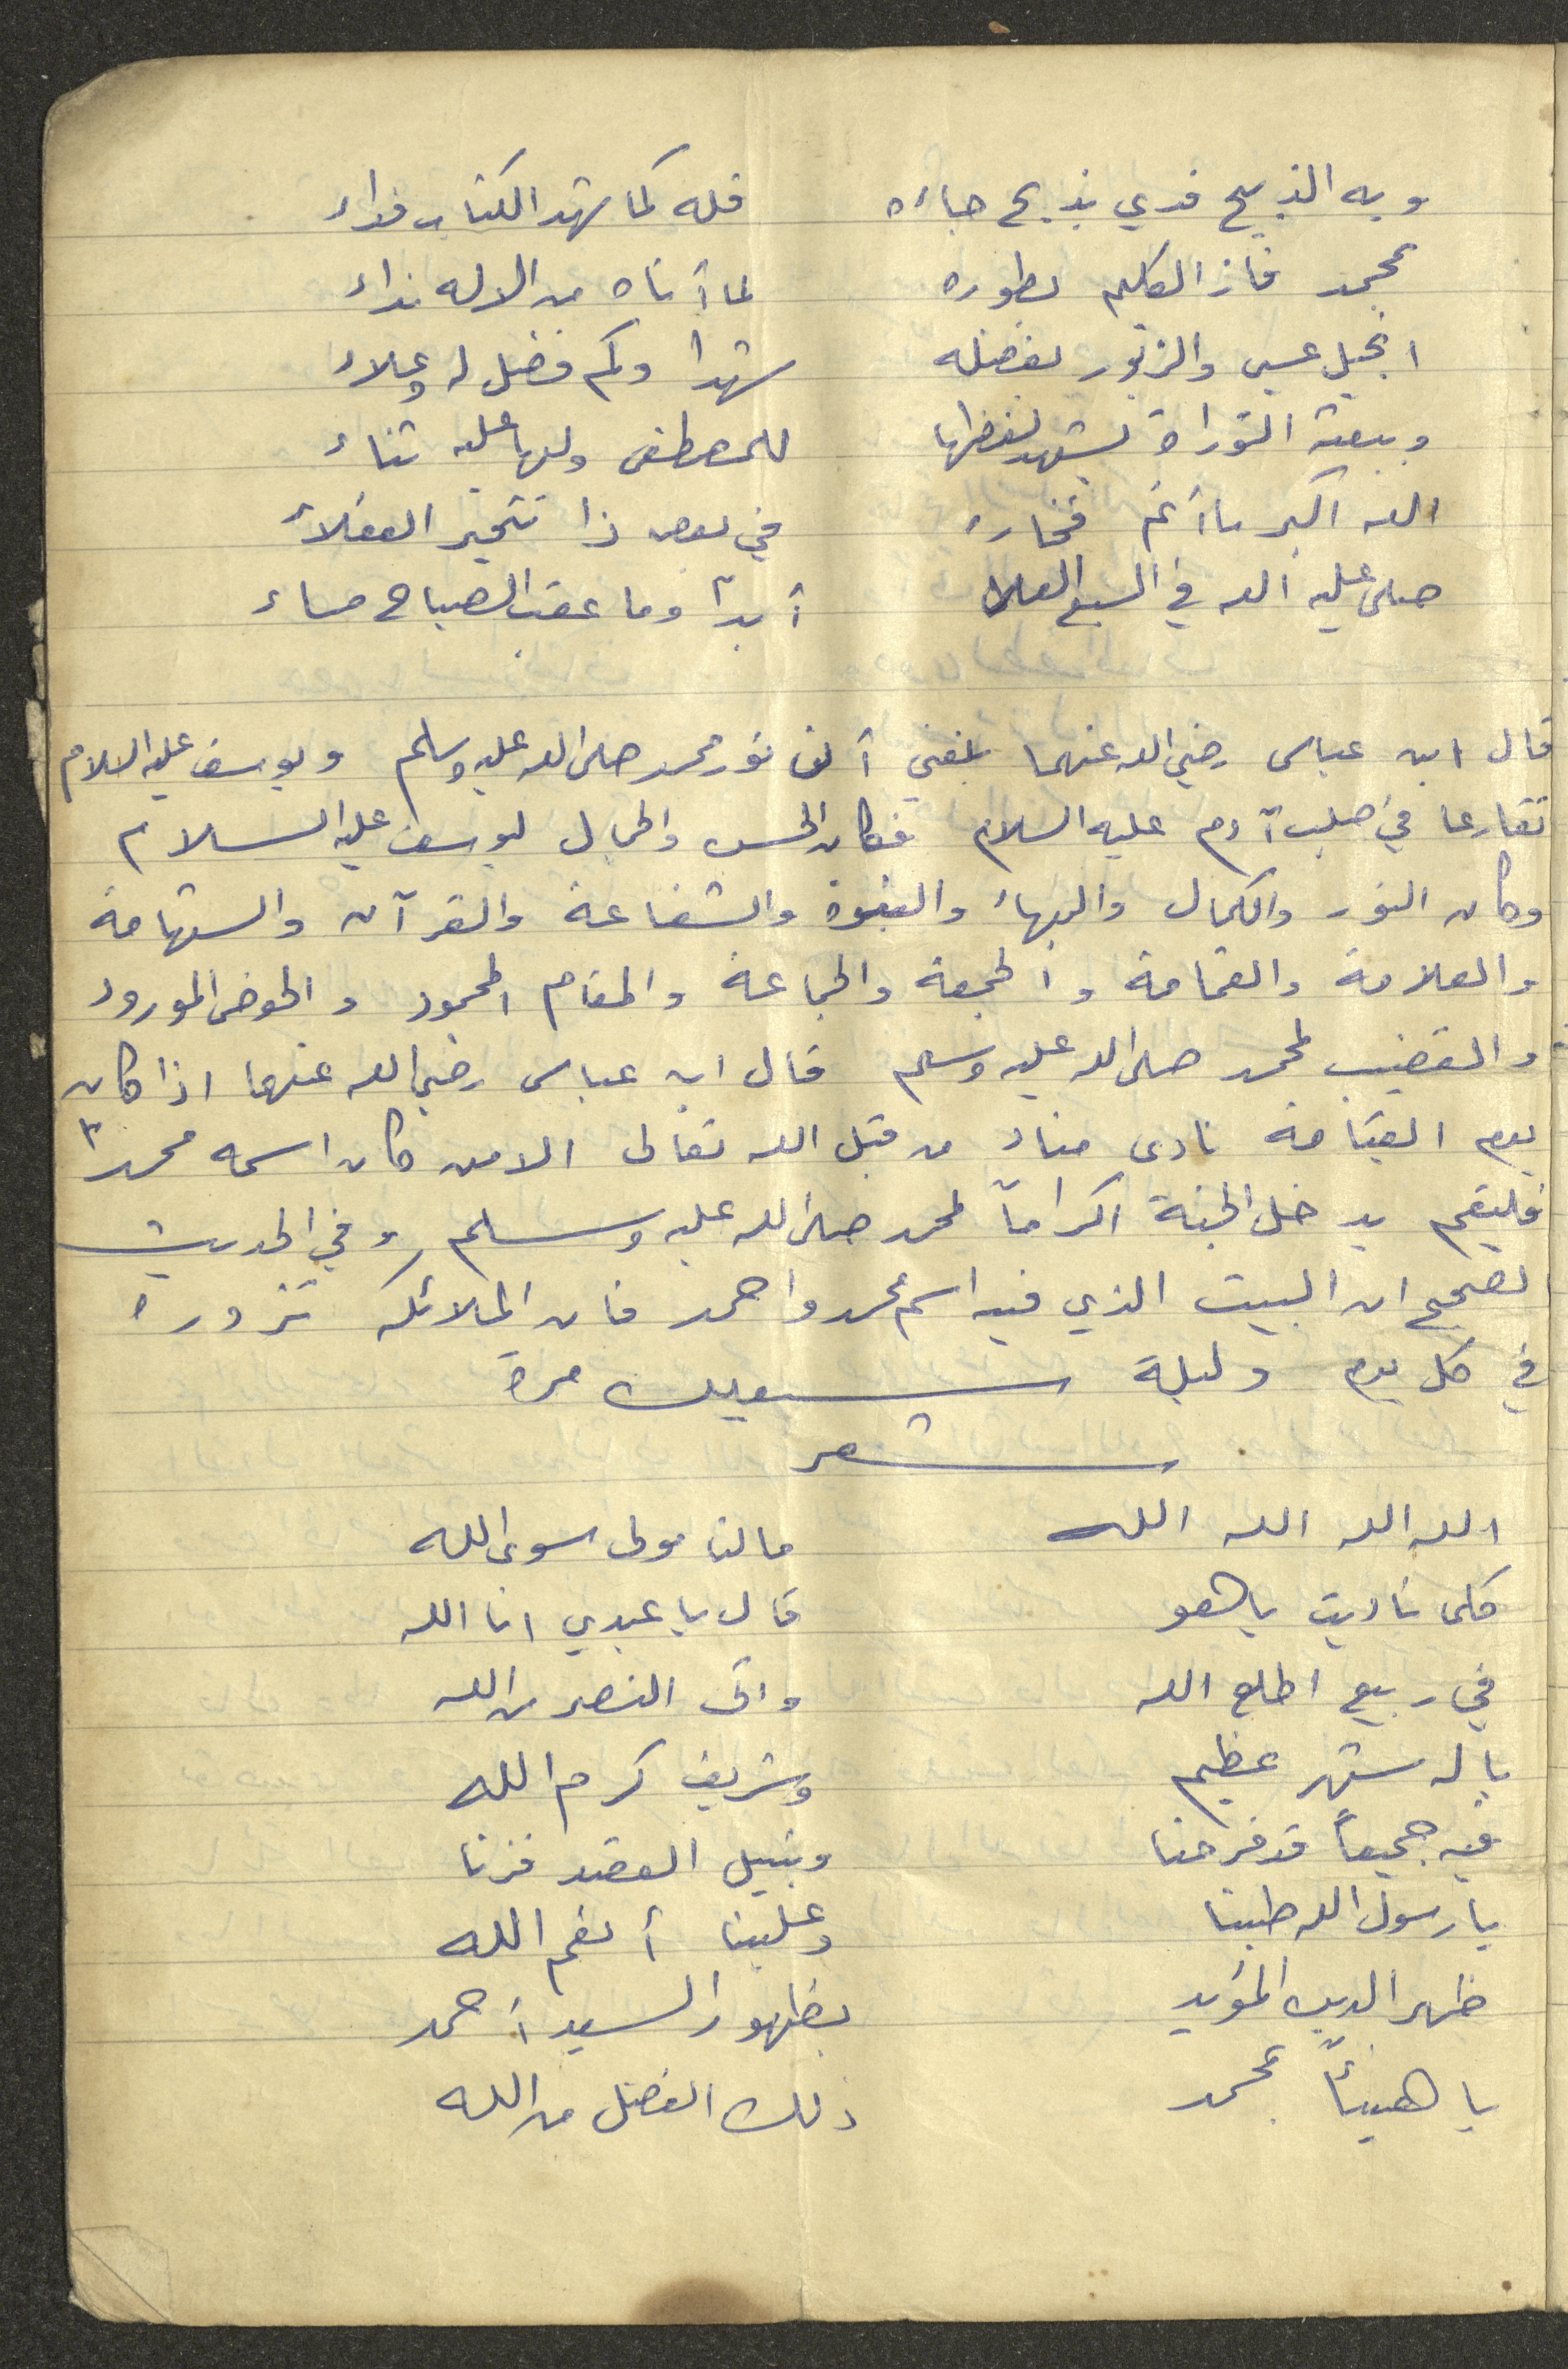 وبه الذبيح فدي بذبح جاءه فله كما شهد الكتاب فداء
بمحمد فاز الكليم بطوره لما أتاه من الاله نداء
انجيل عيسى والزبور بفضله شهدا وكم فضل له وعلاء
وببعثه التوراة يشهد لفظها للمصطفى ولها عليه ثناء
الله اكبر ما أتم فخاره في بعض ذا تتحير العقلاء
صلى عليه الله في السبع العلا أبداً وما عقب الصباح مساء
قال ابن عباس رضي الله عنهما بلغني أن نور محمد صلى الله عليه وسلم ويوسف عليه السلام
تقارعا في صلب آدم عليه السلام فكان الحسن والجمال ليوسف عليه السلام
وكان النور والكمال والبهاء والنبوة والشفاعة والقرآن والشهامة
والعلامة والغمامة والجمعة والجماعة والمقام المحمود والحوض المورود
والقضيب لمحمد صلى الله عليه وسلم قال ابن عباس رضي الله عنهما اذا كان
يوم القيامة نادى مناد من قبل الله تعالى الا من كان اسمه محمداً
فليقم يدخل الجنة اكراماً لمحمد صلى الله عليه وسلم وفي الحديث
لصحيح ان البيت الذي فيه اسم محمد واحمد فان الملائكه تزوره
في كل يوم وليلة سبعين مرة
شعر
الله الله الله الله مالنا مولى سوى الله
كلما ناديت ياهو قال يا عبدي انا الله
في ربيع اطلع الله واتى النصر من الله
يا له شهر عظيم وشريف كرم الله
فيه جميعاً قد فرحنا وبنيل القصد فزنا
يا رسول الله طبنا وعلينا أنعم الله
ظهر الدين المؤيد بظهور السيد أحمد
يا هنيئاً بمحمد ذلك الفضل من الله